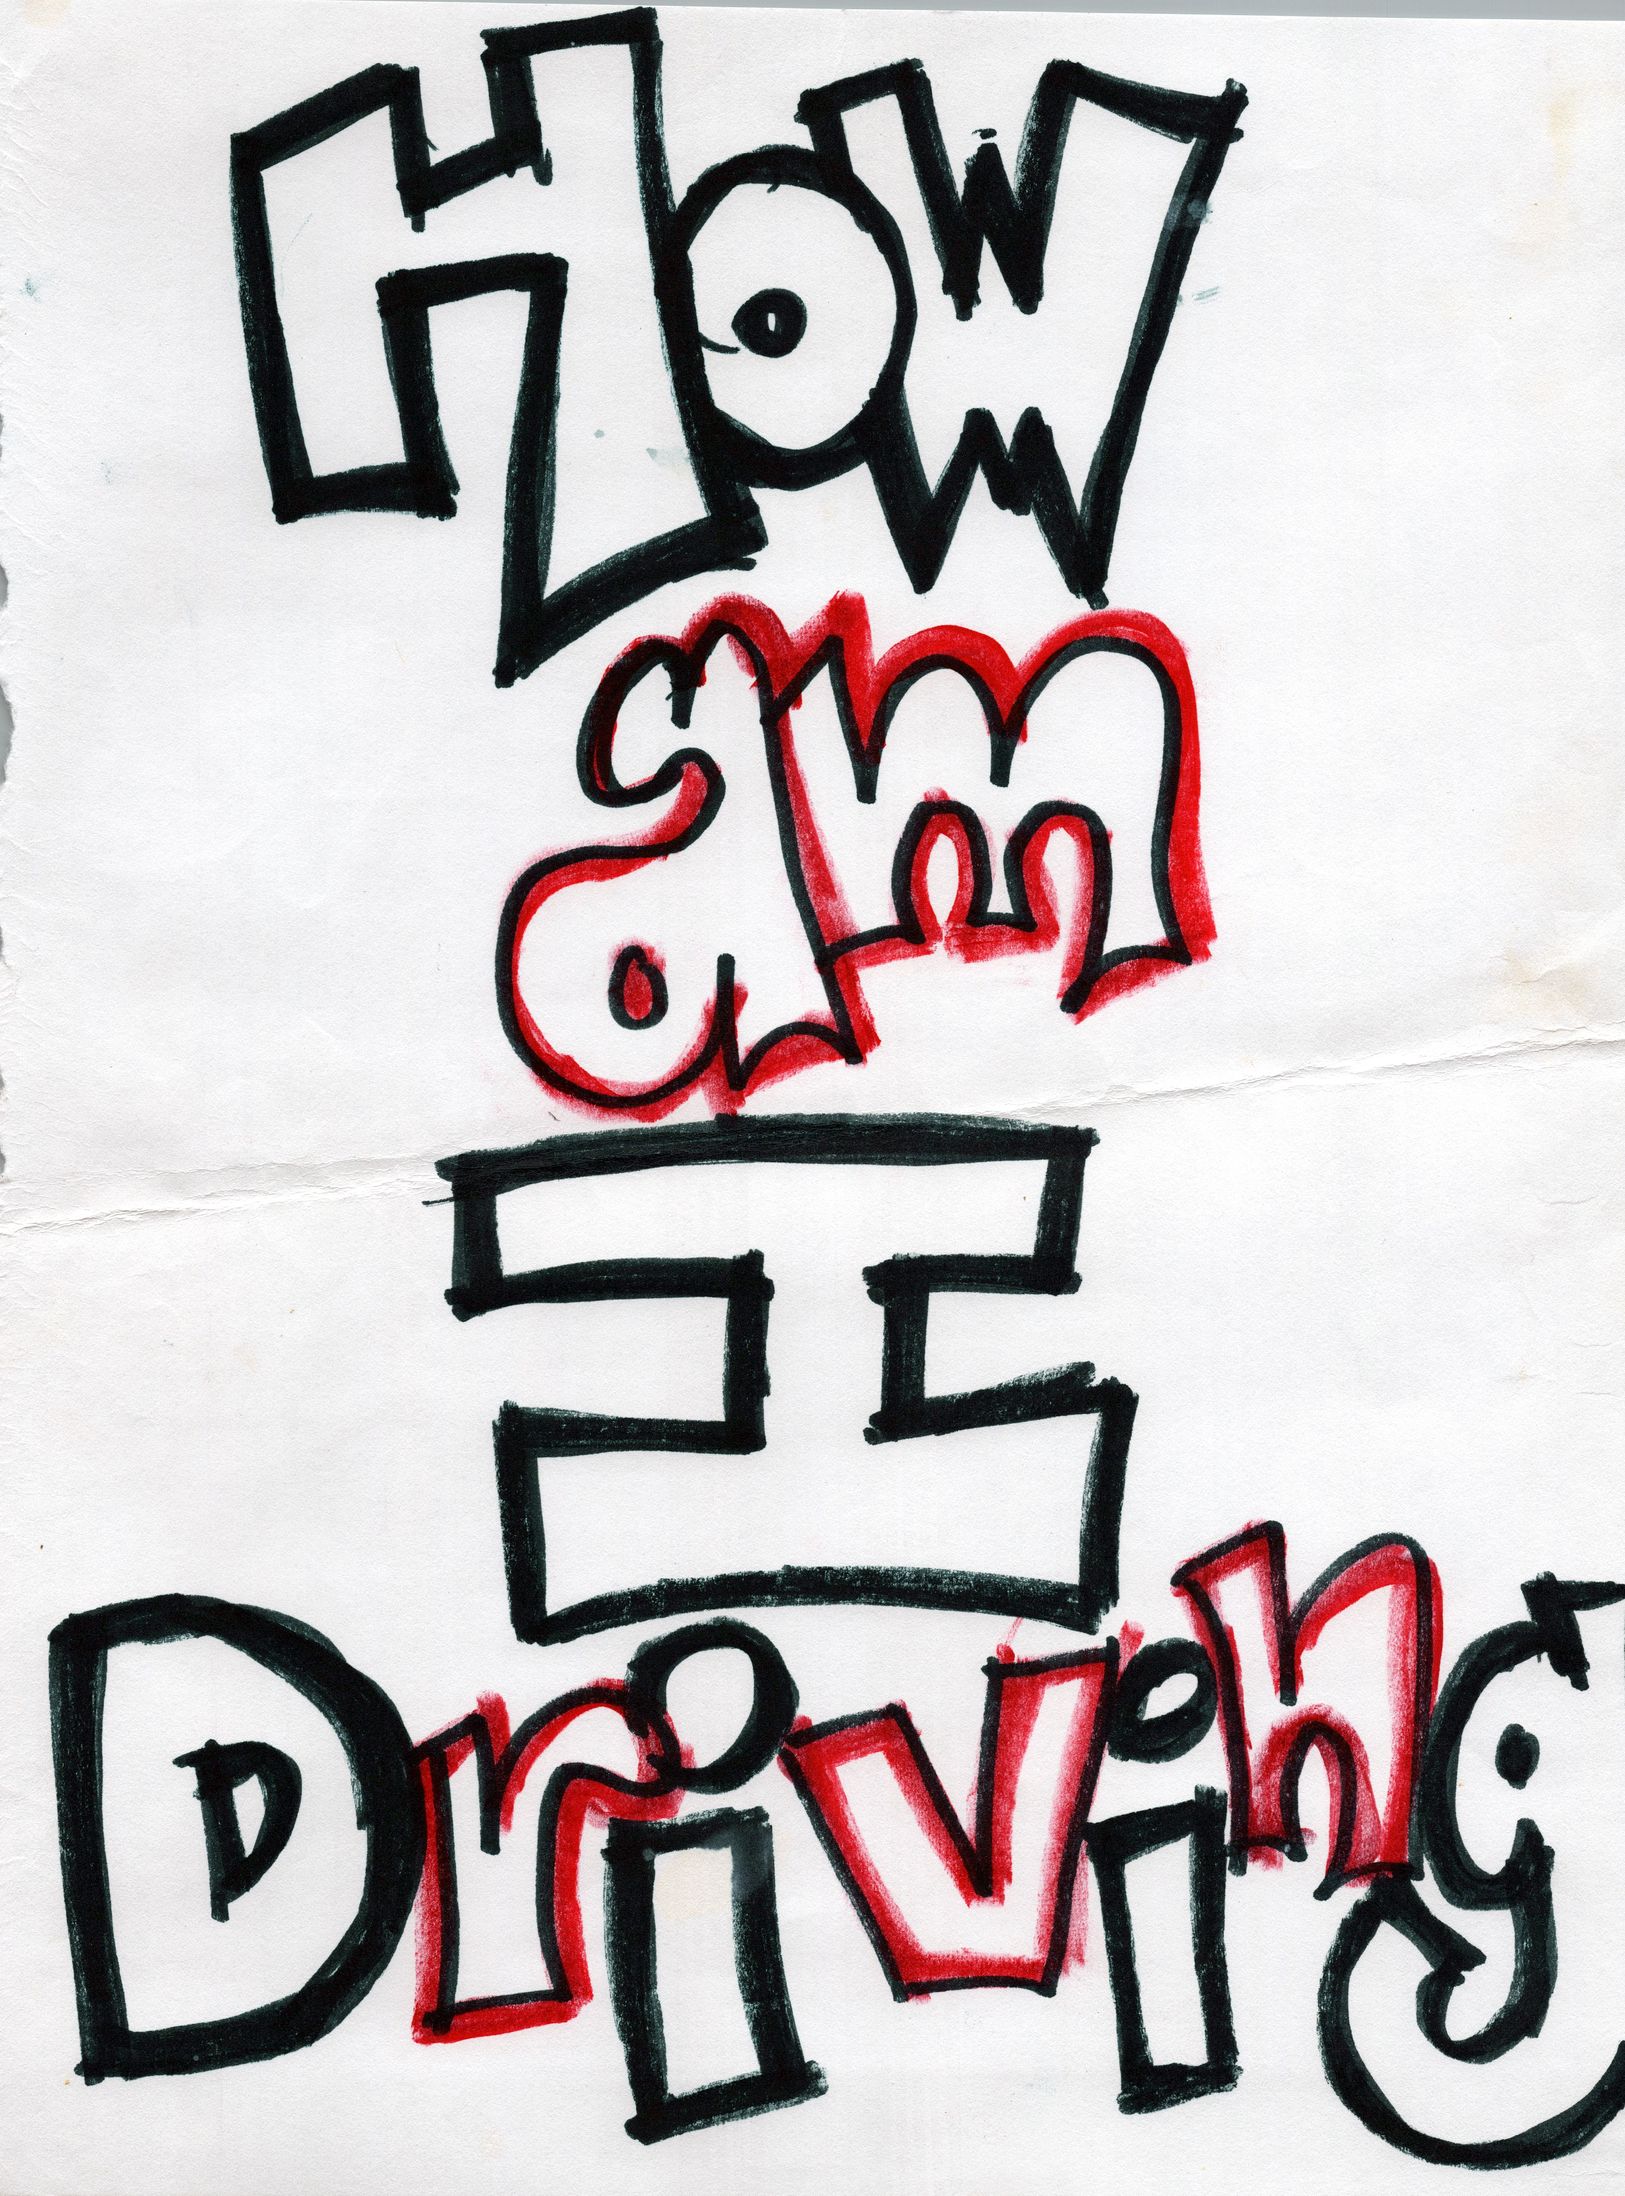 How
am
I
Driving